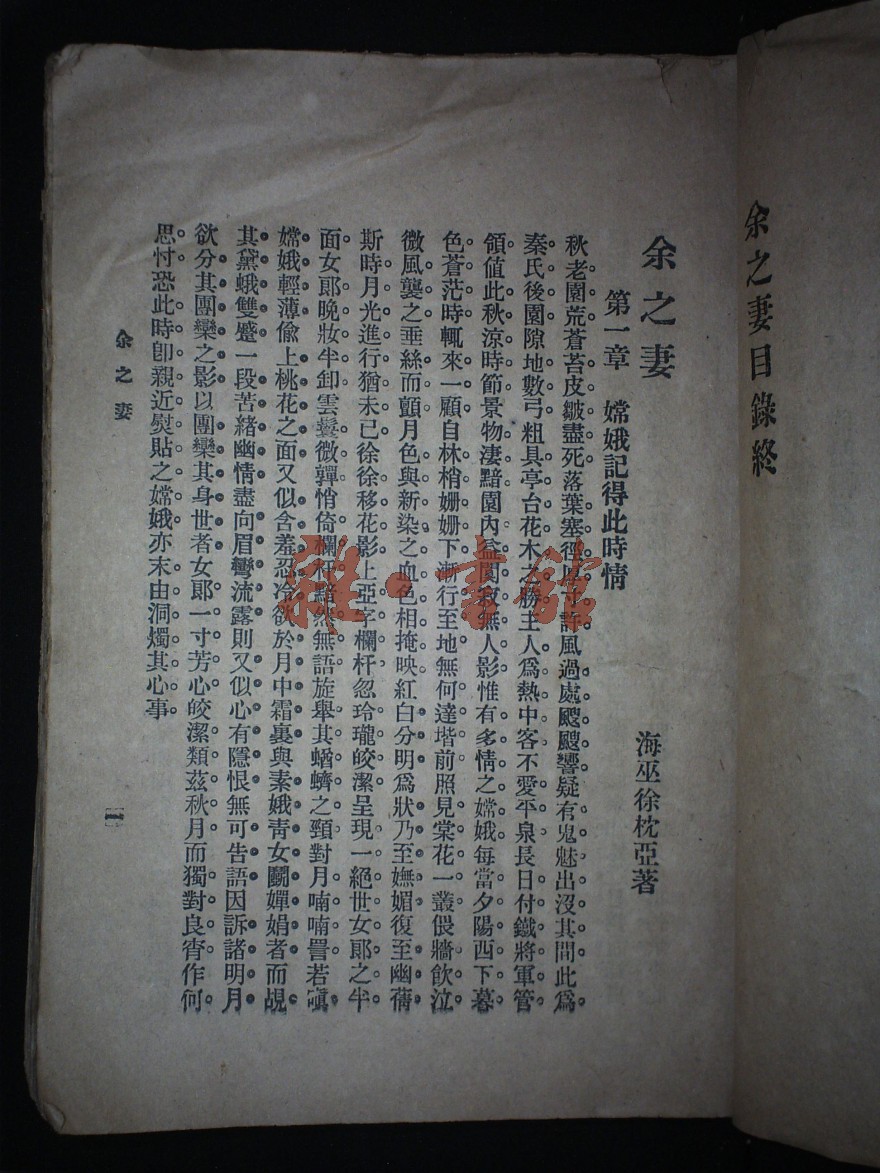 余之妻目錄終
余之妻
海巫徐枕亞著
第一章　嫦娥記得此時情
秋老園荒蒼苔皮皺盡死落葉塞徑以寸許風過處颼颼響疑有鬼魅出沒其間此爲
秦氏後園隙地數弓粗具亭台花木之勝主人爲熱中客不愛平泉長日付鐵將軍管
領値此秋涼時節景物淒黯園內益闃寂無人影惟有多情之嫦娥每當夕陽西下暮
色蒼茫時輒來一顧自林梢姍姍下漸行至地無何達堦前照見棠花一叢偎牆飲泣
微風襲之垂絲而顫月色與新染之血色相掩映紅白分明爲狀乃至嫵媚復至幽蒨
斯時月光進行猶未已徐徐移花影上亞字欄杆忽玲瓏皎潔呈現一絕世女郞之半
面女郞晚妝半卸雲鬟微嚲悄倚欄杆黯然無語旋舉其蝤蠐之頸對月喃喃詈若嗔
嫦娥輕薄偸上桃花之面又似含羞忍冷欲於月中霜裏與素娥靑女鬭嬋娟者而覘
其黛蛾雙蹙一段苦緖幽情盡向眉彎流露則又似心有隱恨無可告語因訴諸明月
欲分其團欒之影以團欒其身世者女郞一寸芳心皎潔類茲秋月而獨對良宵作何
思忖恐此時卽親近熨貼之嫦娥亦未由洞燭其心事
余之妻
一
雜書館